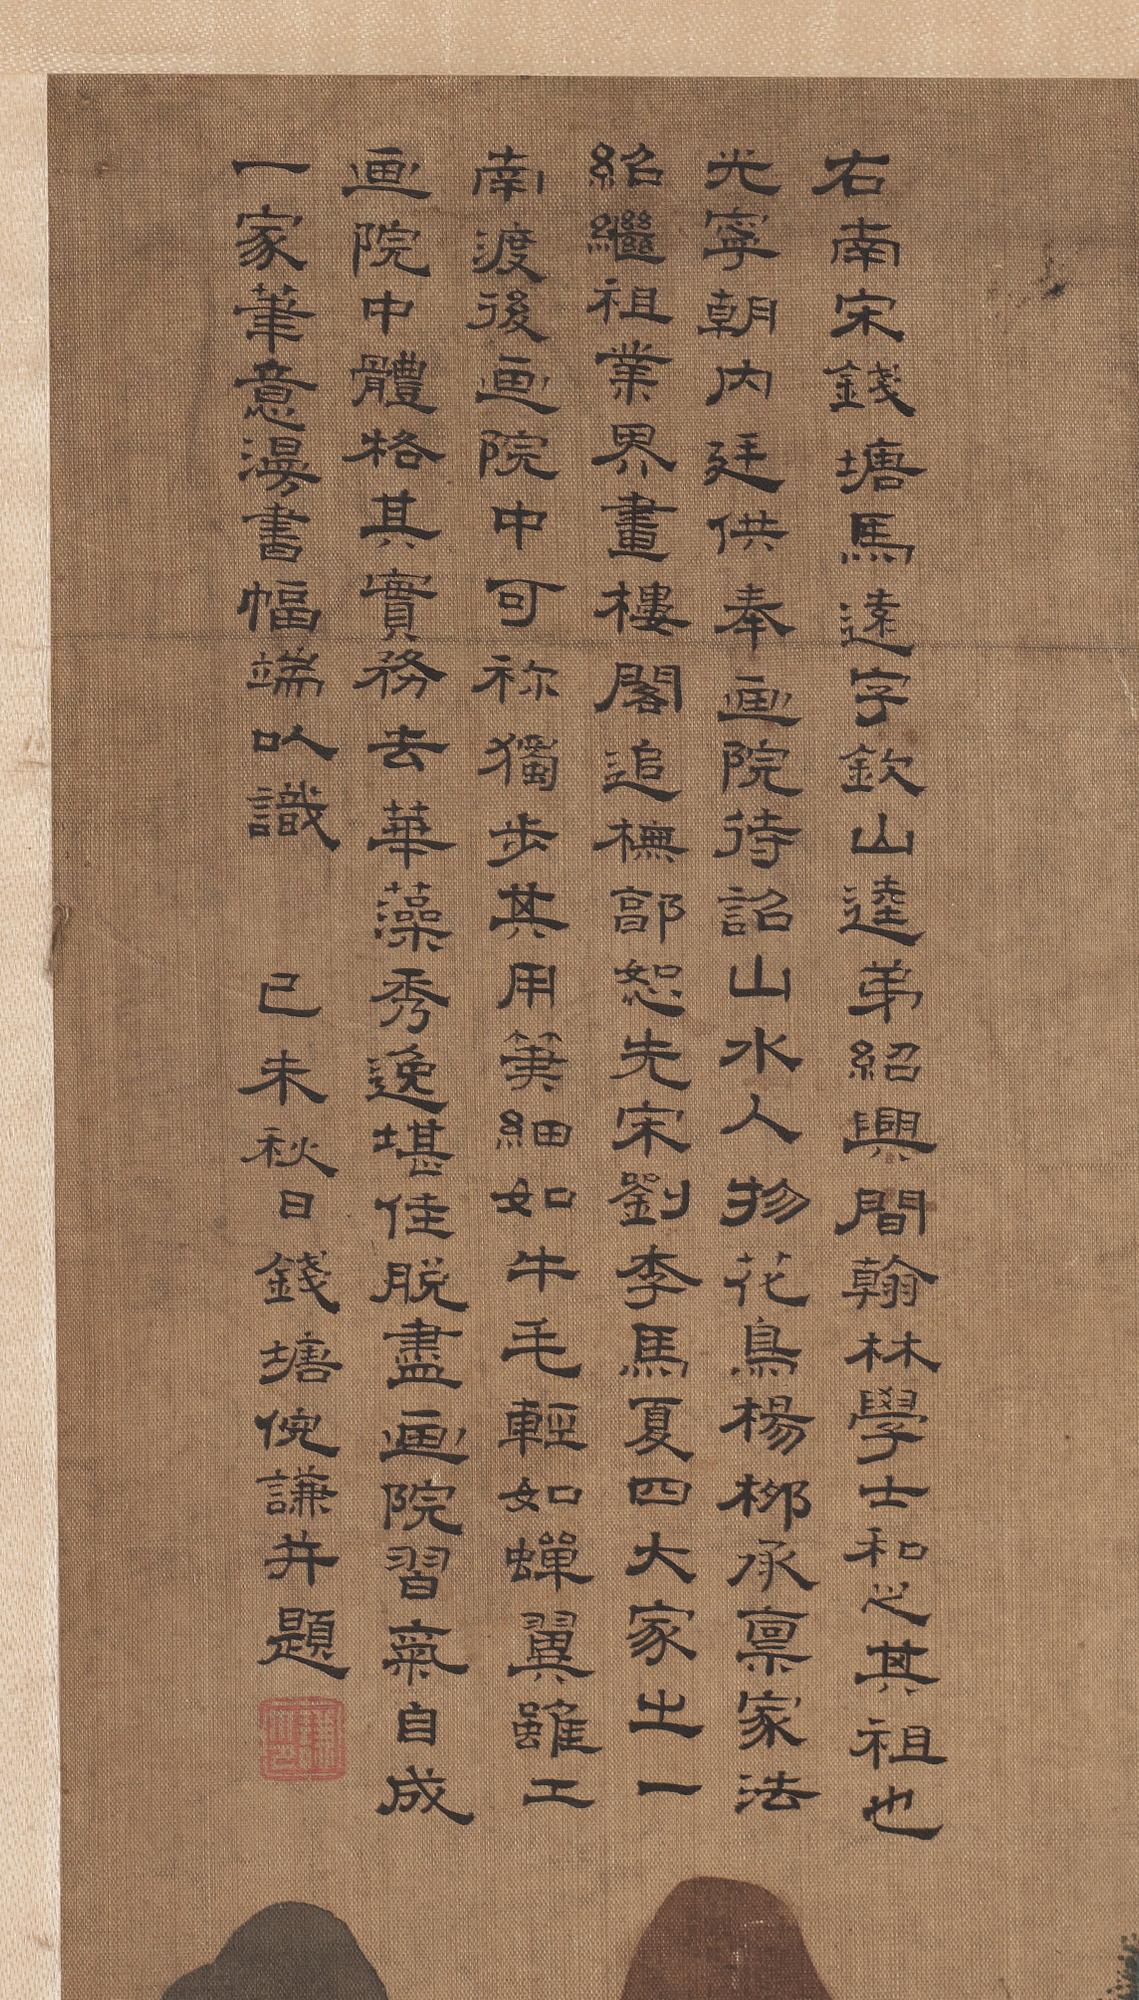 右南宋錢塘馬遠字欽山逵弟紹興間翰林學士和之其祖也
光寧朝內廷供奉画院待詔山水人物花鳥楊柳承禀家法
紹繼祖業界畫樓閣追橅郭恕先宋劉李馬夏四大家㞢一
南渡後画院中可称獨步其用筆細如牛毛輕如蟬翼雖工
画院中體格其實務去華藻秀逸堪佳脱盡画院習氣自成
一家筆意漫書幅端以識 己未秋日錢塘倪謙并題